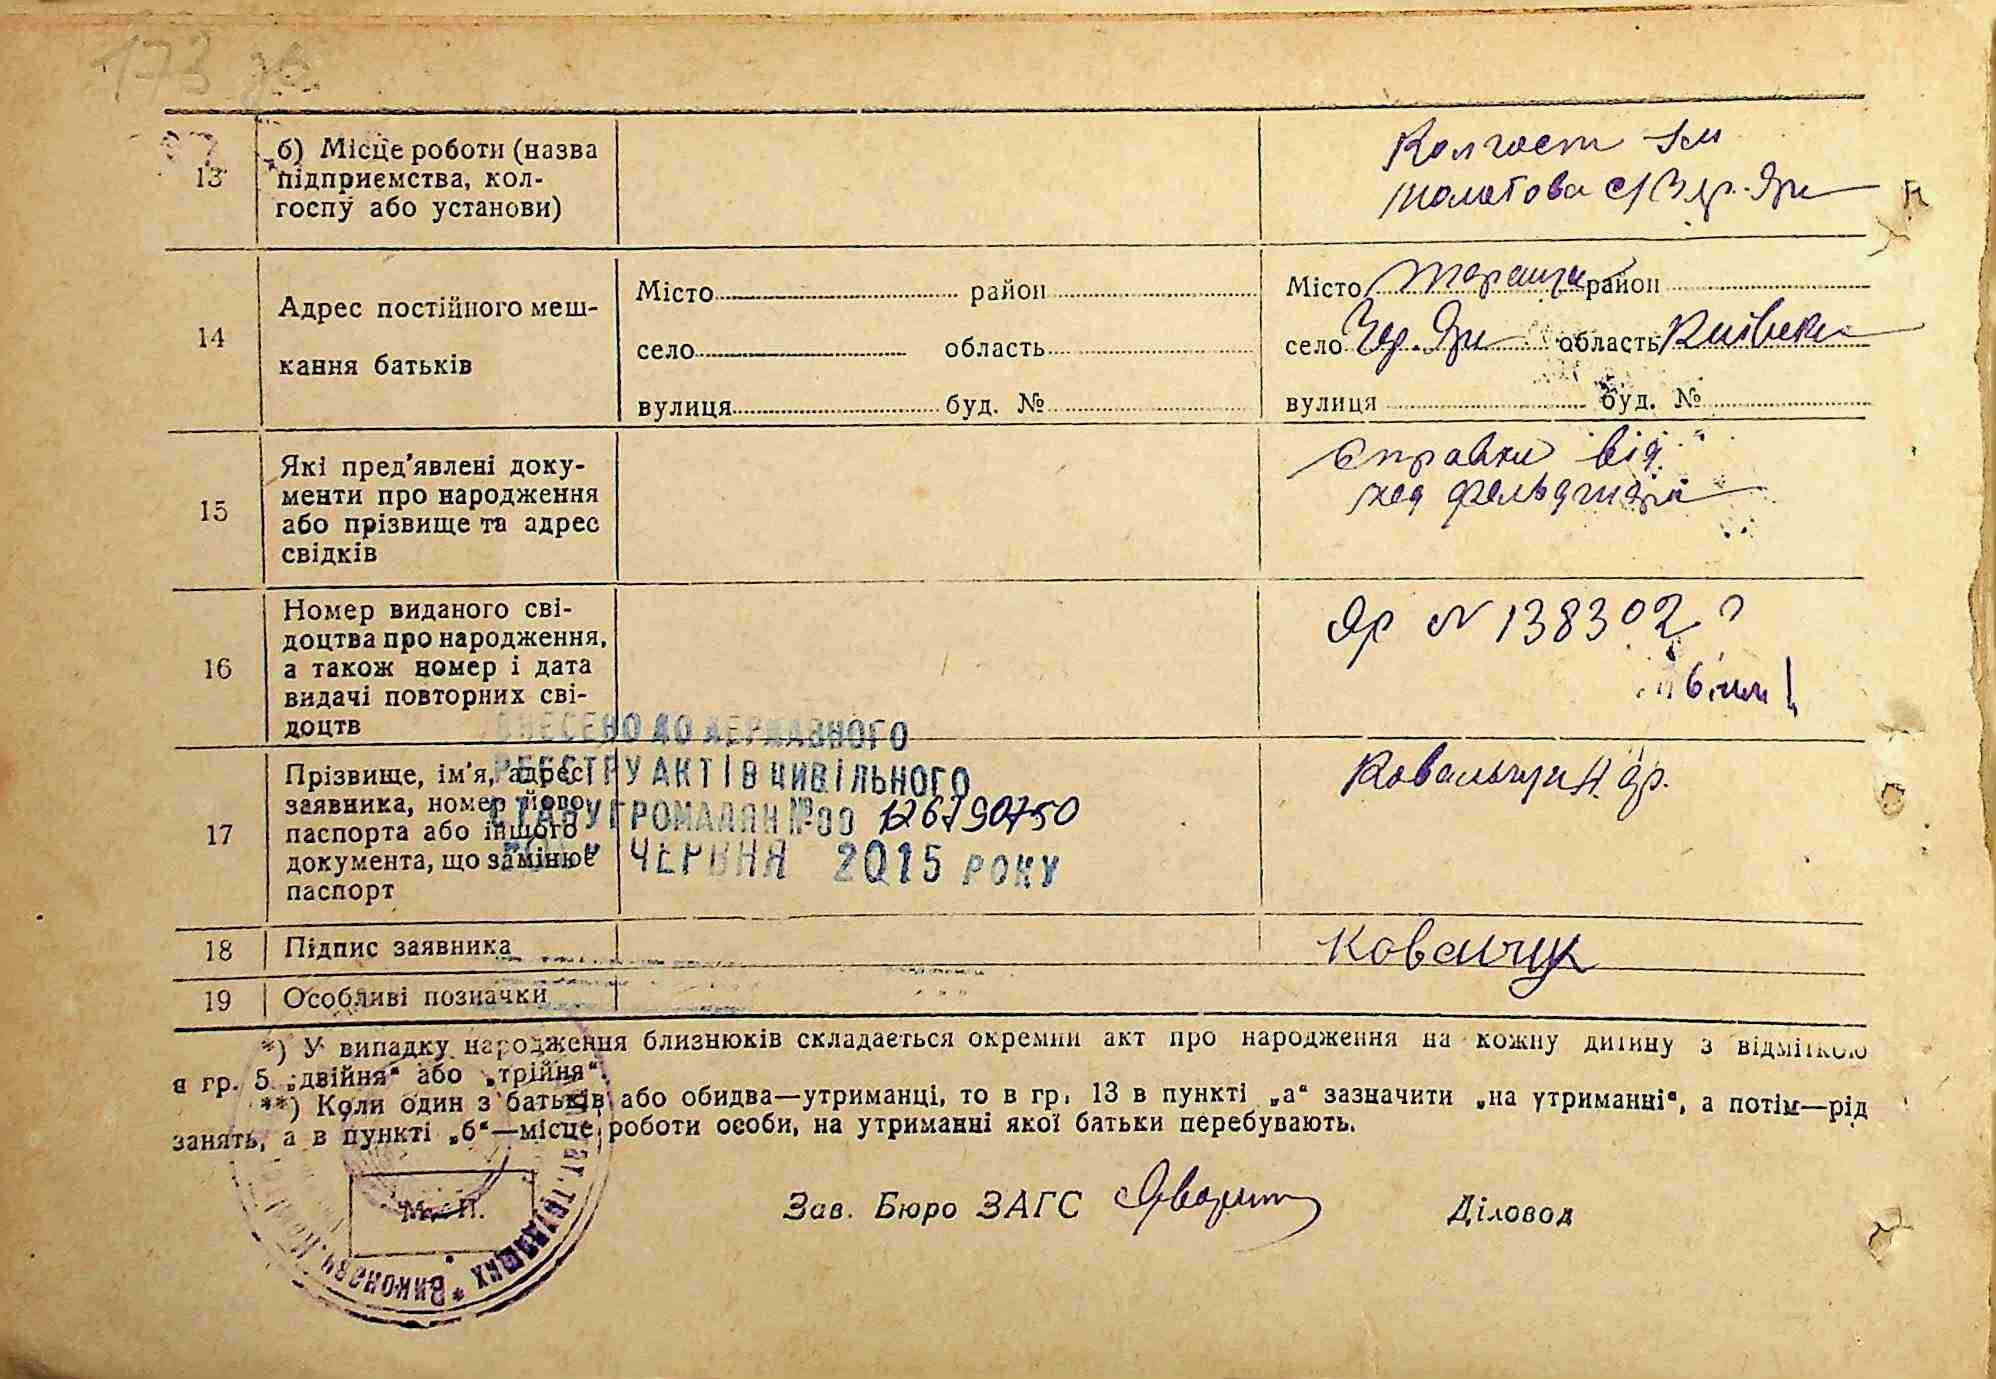 173 зв.
13 б) Місце роботи (назва
підприємства, кол-
госпу або установи)
Колгосп Ім
Молотова с/
14 Адрес постійного меш-
кання батьків
Місто район
село область
вулиця буд. №
Місто Тараща район
село Чер. Яри область Київськ
вулиця буд. №
15 Які пред'явлені доку-
менти про народження
або прізвище та адрес
свідків
Справки від
фельдшера
16 Номер виданого сві-
доцтва про народження,
а також номер і дата
видачі повторних сві-
доцтв
ЯР № 138302
17 Прізвище, ім'я, адрес
заявника, номер його
паспорта або іншого
документа, що замінює
паспорт
ВНЕСЕНО ДО ДЕРЖАВНОГО
РЕЄСТРУ АКТІВ ЦИВІЛЬНОГО
СТАНУ ГРОМАДЯН №00 126790750
ЧЕРВНЯ 2015 РОКУ
18 Підпис заявника
Ковальчук
19 Особливі позначки
*) У випадку народження близнюків складається окремий акт про народження на кожну дитину з відміткою
в гр. 5 „двійня“ або „трійня“.
**) Коли один з батьків або обидва—утриманці, то в гр. 13 в пункті „а“ зазначити „на утриманні“, а потім—рід
занять, а в пункті „б“—місце роботи особи, на утриманні якої батьки перебувають.
М. П.
Зав. Бюро ЗАГС
Діловод
трудящих * Виконавч. Комітет